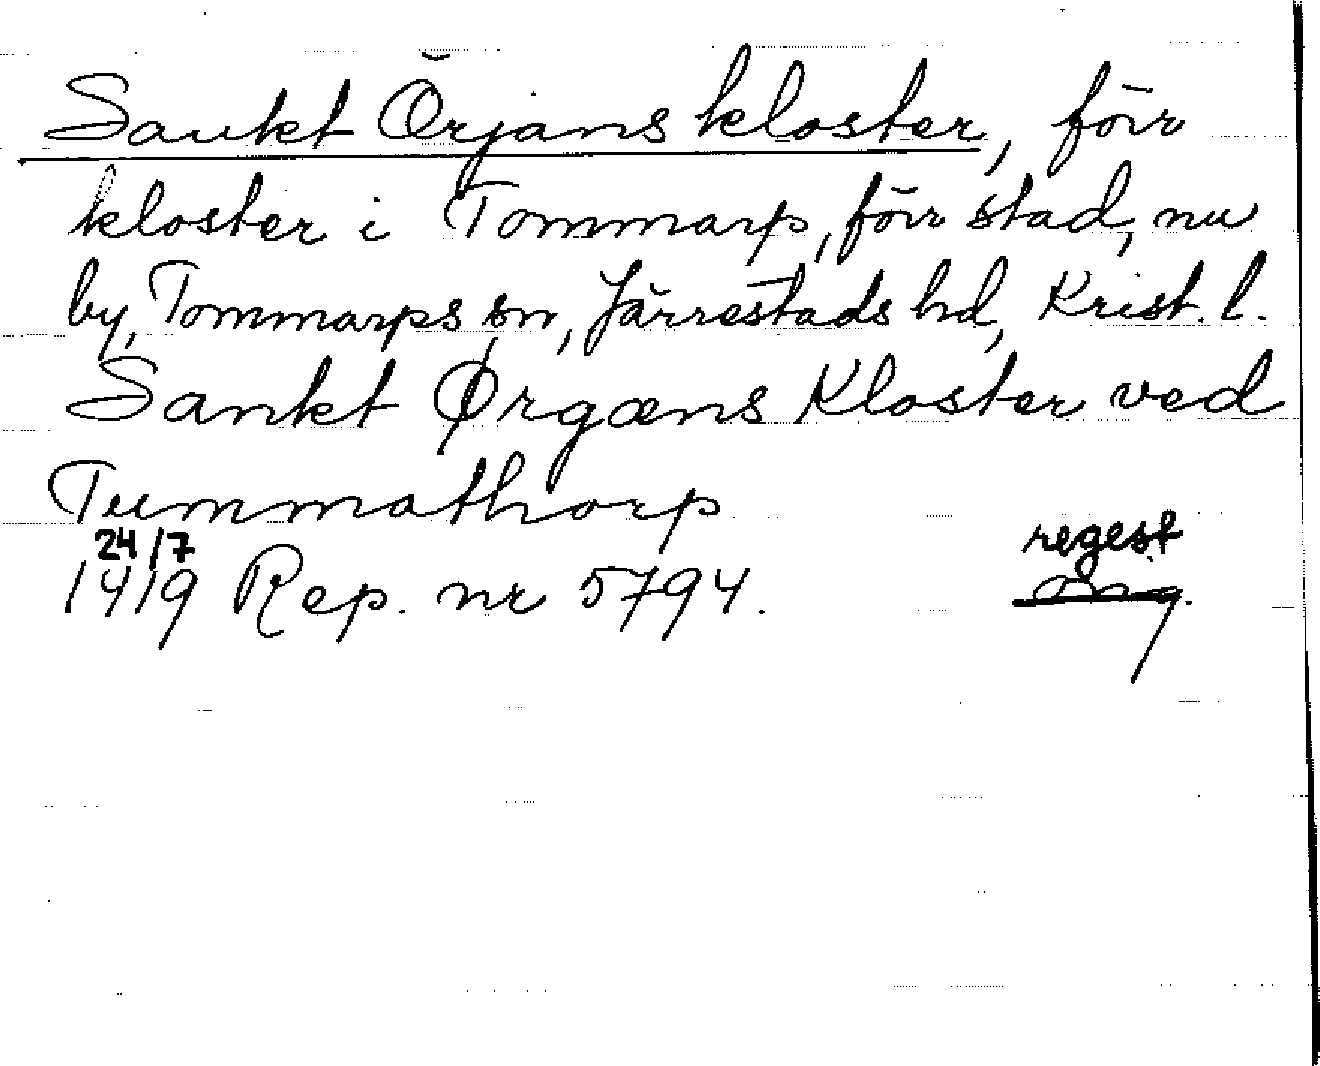 Sankt Örjans kloster, förr
kloster i Tommarp, förr stad, nu
by, Tommarps sn, Järrestads hd, Krist. l.
Sankt Ørgæns Kloster ved
Tummathorp
24/7 regest
1419 Rep. nr 5794. omg.